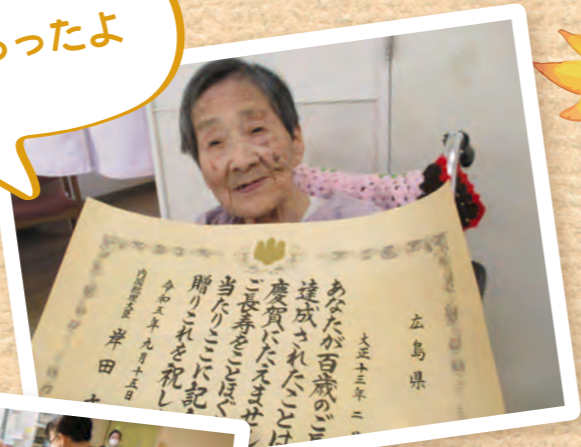 ったよ
広島県
大正十三年 二
あなたが百歳のご長
達成されたことは
慶賀にたえませ
ご長寿をことほぐ
当たりここに記
贈りこれを祝し
令和五年九月十五日
内閣総理大臣 岸田